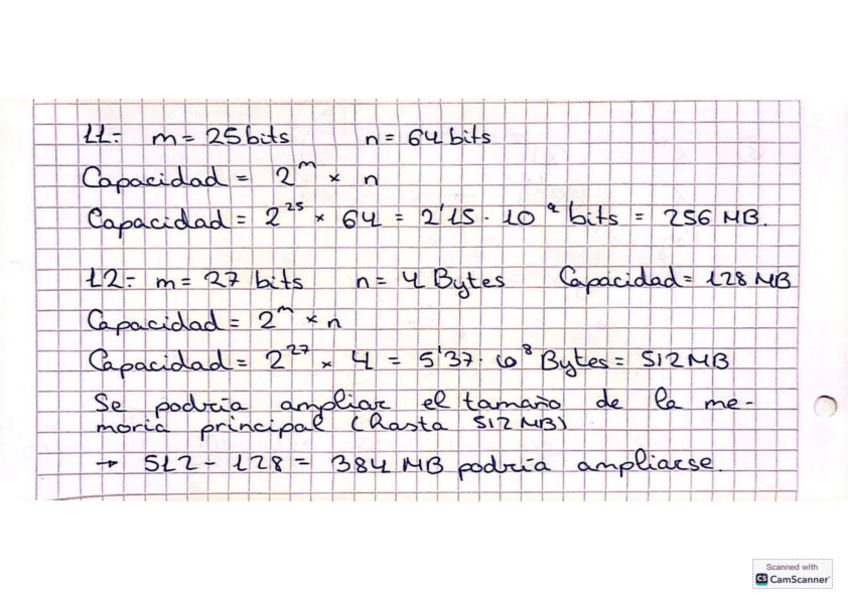 11- m= 25 bits n= 64 bits
Capacidad = 2^m × n
Capacidad = 2^25 × 64 = 2'15 · 10^9 bits = 256 MB.
12- m= 27 bits n= 4 Bytes Capacidad= 128 MB
Capacidad = 2^m × n
Capacidad = 2^27 × 4 = 5'37 · 10^8 Bytes = 512 MB
Se podría ampliar el tamaño de la me-
moria principal (hasta 512 MB)
→ 512 - 128 = 384 MB podría ampliarse.
Scanned with
CS CamScanner